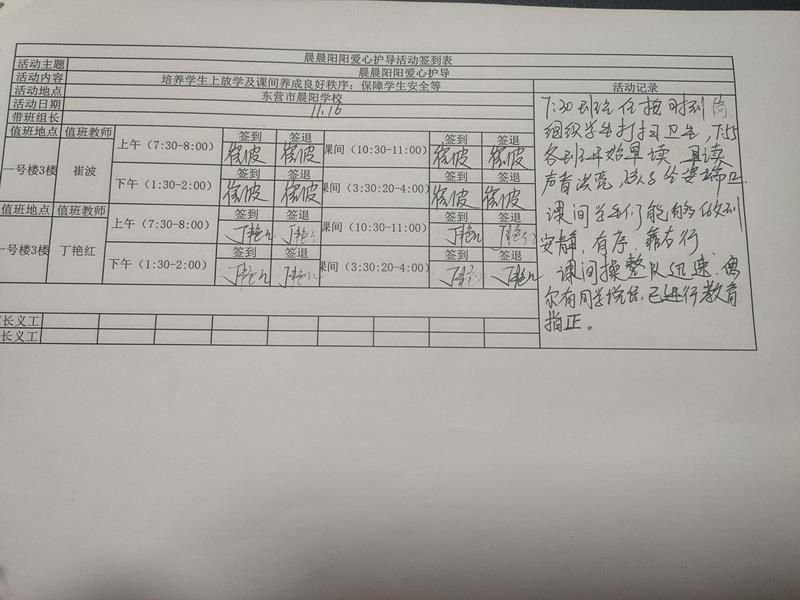 晨晨阳阳爱心护导活动签到表
活动主题 晨晨阳阳爱心护导
活动内容 培养学生上放学及课间养成良好秩序;保障学生安全等
活动地点 东营市晨阳学校
活动日期 11.16
带班组长
值班地点 值班教师 签到 签退 签到 签退
一号楼3楼 崔波 上午（7:30-8:00） 崔波 崔波 课间（10:30-11:00） 崔波 崔波
签到 签退 签到 签退
下午（1:30-2:00） 崔波 崔波 课间（3:30:20-4:00） 崔波 崔波
值班地点 值班教师 签到 签退 签到 签退
一号楼3楼 丁艳红 上午（7:30-8:00） 丁艳红 丁艳红 课间（10:30-11:00） 丁艳红 丁艳红
签到 签退 签到 签退
下午（1:30-2:00） 丁艳红 丁艳红 课间（3:30:20-4:00） 丁艳红 丁艳红
长义工
长义工
活动记录
7:30班主任按时到岗
组织学生打扫卫生，7:55
各班开始早读，且读
声音洪亮，孩子坐姿端正
课间学生们能够做到
安静，有序，靠右行
课间操整队迅速，偶
尔有同学说话，已进行教育
指正。